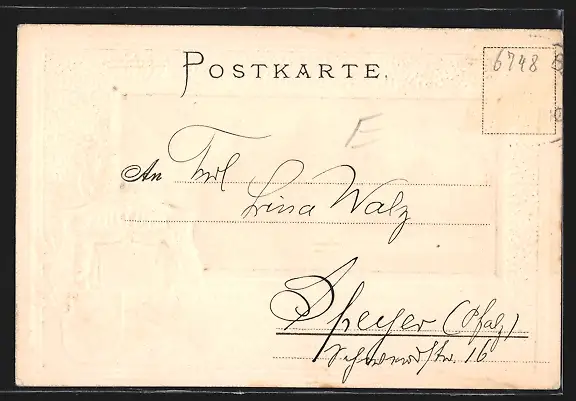 POSTKARTE.
6748
E
An Frl
Lina Walz
Speyer (Pfalz)
16